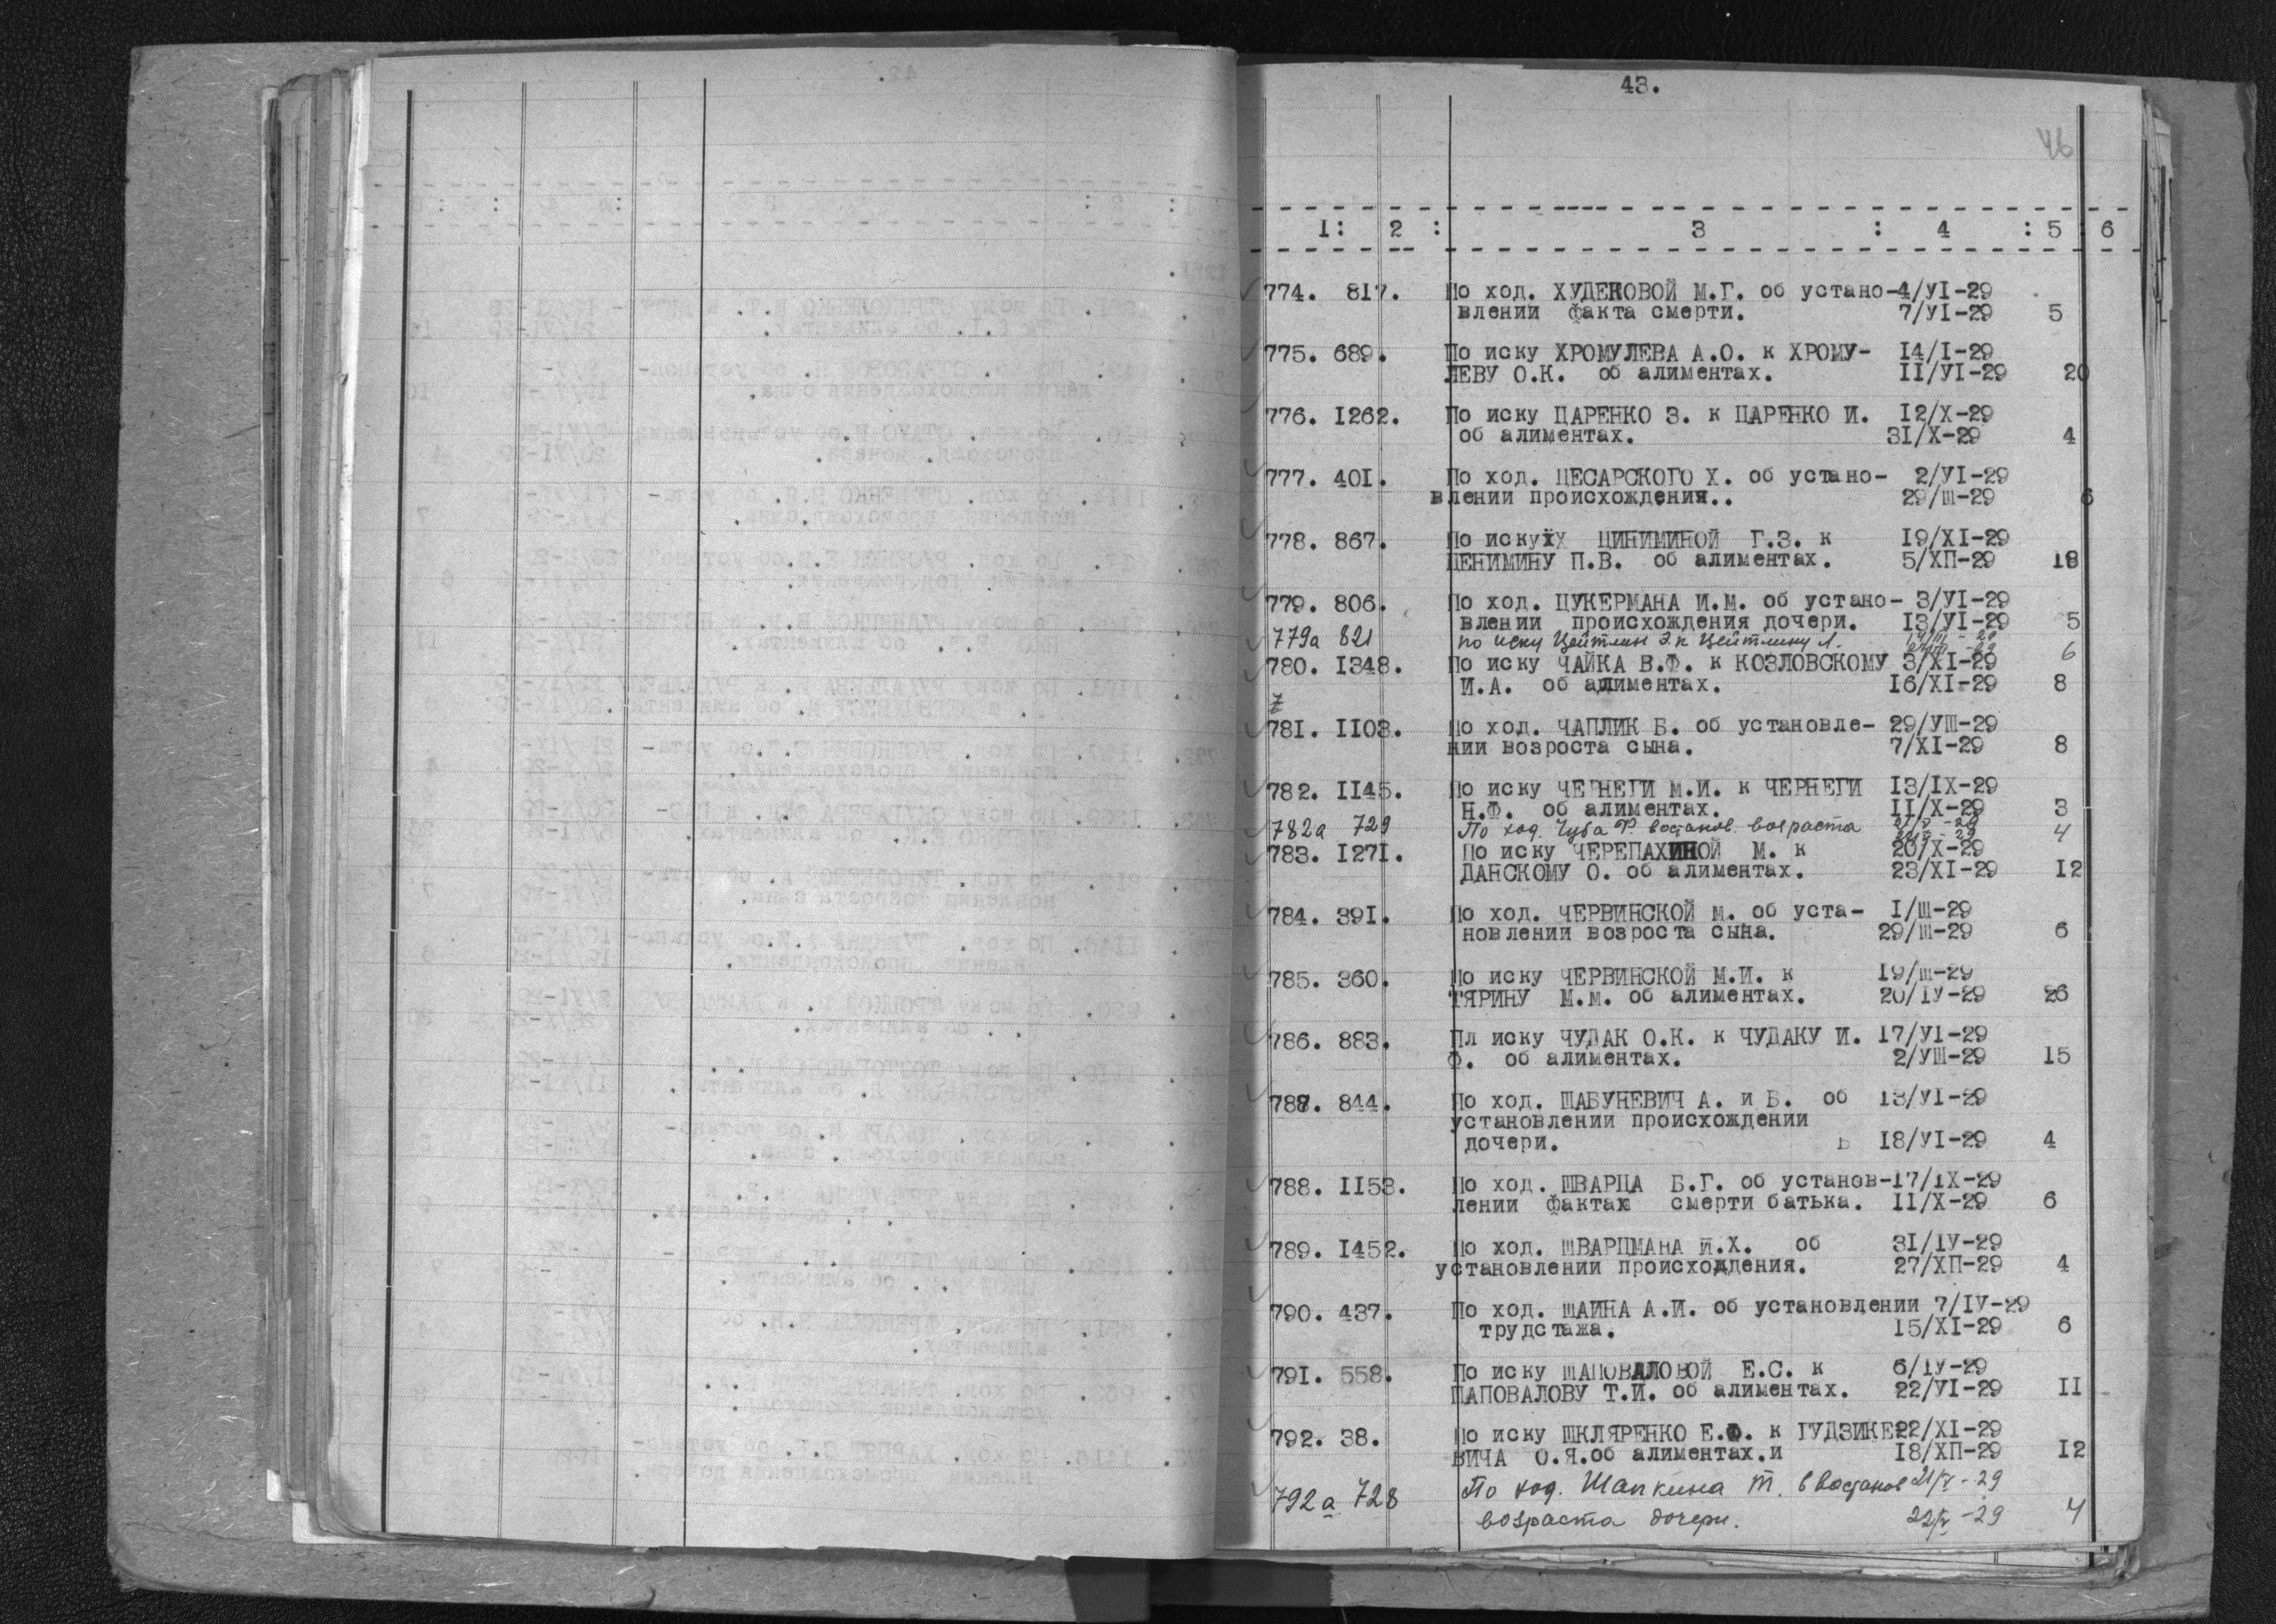 43.
46
1: 2 : 3 : 4 : 5 : 6
774. 817. По ход. ХУДЕКОВОЙ М.Г. об устано- 4/УI-29
влении факта смерти. 7/УI-29 5
775. 689. По иску ХРОМУЛЕВА А.О. к ХРОМУ- I4/I-29
ЛЕВУ О.К. об алиментах. II/УI-29 20
776. I262. По иску ЦАРЕНКО З. к ЦАРЕНКО И. I2/X-29
об алиментах. 3I/X-29 4
777. 40I. По ход. ЦЕСАРСКОГО Х. об устано- 2/УI-29
влении происхождения.. 29/Ш-29 6
778. 867. По иску ЦИНИМИНОЙ Г.З. к I9/XI-29
ЦЕНИМИНУ П.В. об алиментах. 5/ХП-29 18
779. 806. По ход. ЦУКЕРМАНА И.М. об устано- 3/УI-29
влении происхождения дочери. I3/УI-29 5
779а 821 по иску Цейтлин Э. к Цейтлину Л. 6
780. I348. По иску ЧАЙКА В.Ф. к КОЗЛОВСКОМУ 3/XI-29
И.А. об алиментах. I6/XI-29 8
78I. II03. По ход. ЧАПЛИК Б. об установле- 29/УШ-29
нии возроста сына. 7/XI-29 8
782. II45. По иску ЧЕРНЕГИ М.И. к ЧЕРНЕГИ I3/IX-29
Н.Ф. об алиментах. II/X-29 3
782а 729 По ход. Чуба Ф. востанов. возраста 4
783. I27I. По иску ЧЕРЕПАХИНОЙ М. к 20/X-29
ДАНСКОМУ О. об алиментах. 23/XI-29 I2
784. 39I. По ход. ЧЕРВИНСКОЙ М. об уста- I/Ш-29
новлении возроста сына. 29/Ш-29 6
785. 360. По иску ЧЕРВИНСКОЙ М.И. к I9/Ш-29
ТЯРИНУ М.М. об алиментах. 20/IУ-29 26
786. 883. Пл иску ЧУДАК О.К. к ЧУДАКУ И. I7/УI-29
Ф. об алиментах. 2/УШ-29 I5
787. 844. По ход. ШАБУНЕВИЧ А. и Б. об I3/УI-29
установлении происхождении
дочери. I8/УI-29 4
788. II53. По ход. ШВАРЦА Б.Г. об установ- I7/IX-29
лении факта смерти батька. II/X-29 6
789. I452. По ход. ШВАРЦМАНА И.Х. об 3I/IУ-29
установлении происхождения. 27/ХП-29 4
790. 437. По ход. ШАИНА А.И. об установлении 7/IУ-29
трудстажа. I5/XI-29 6
79I. 558. По иску ШАПОВАЛОВОЙ Е.С. к 6/IУ-29
ШАПОВАЛОВУ Т.И. об алиментах. 22/УI-29 II
792. 38. По иску ШКЛЯРЕНКО Е.Ф. к ГУДЗИКЕ- 22/XI-29
ВИЧА О.Я.об алиментах.и I8/ХП-29 I2
792а 728 По ход. Шапкина Т. в востанов 21/V-29
возраста дочери. 22/V-29 4